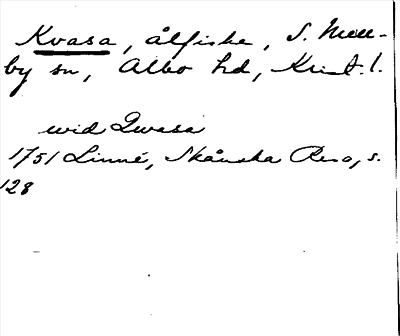 Kvasa, ålfiske, S. Mell-
by sn, Albo hd, Krist. l.
wid Qwasa
1751 Linné, Skånska Resa, s.
128